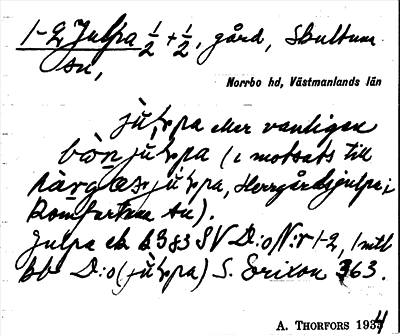 1-2 Julpa ½ + ½, gård, Skultuna
sn,
Norrbo hd, Västmanlands län
jùlpa eller vanligen
bòn jùlpa (i motsats till
jùlpa, Herrgårdsjulpa i
Romfartuna sn).
Julpa ek b 383 SV D:o N:r 1-2, 1 mtl
bb D:o (jùlpa) S. Erixon 363.
A. THORFORS 1934